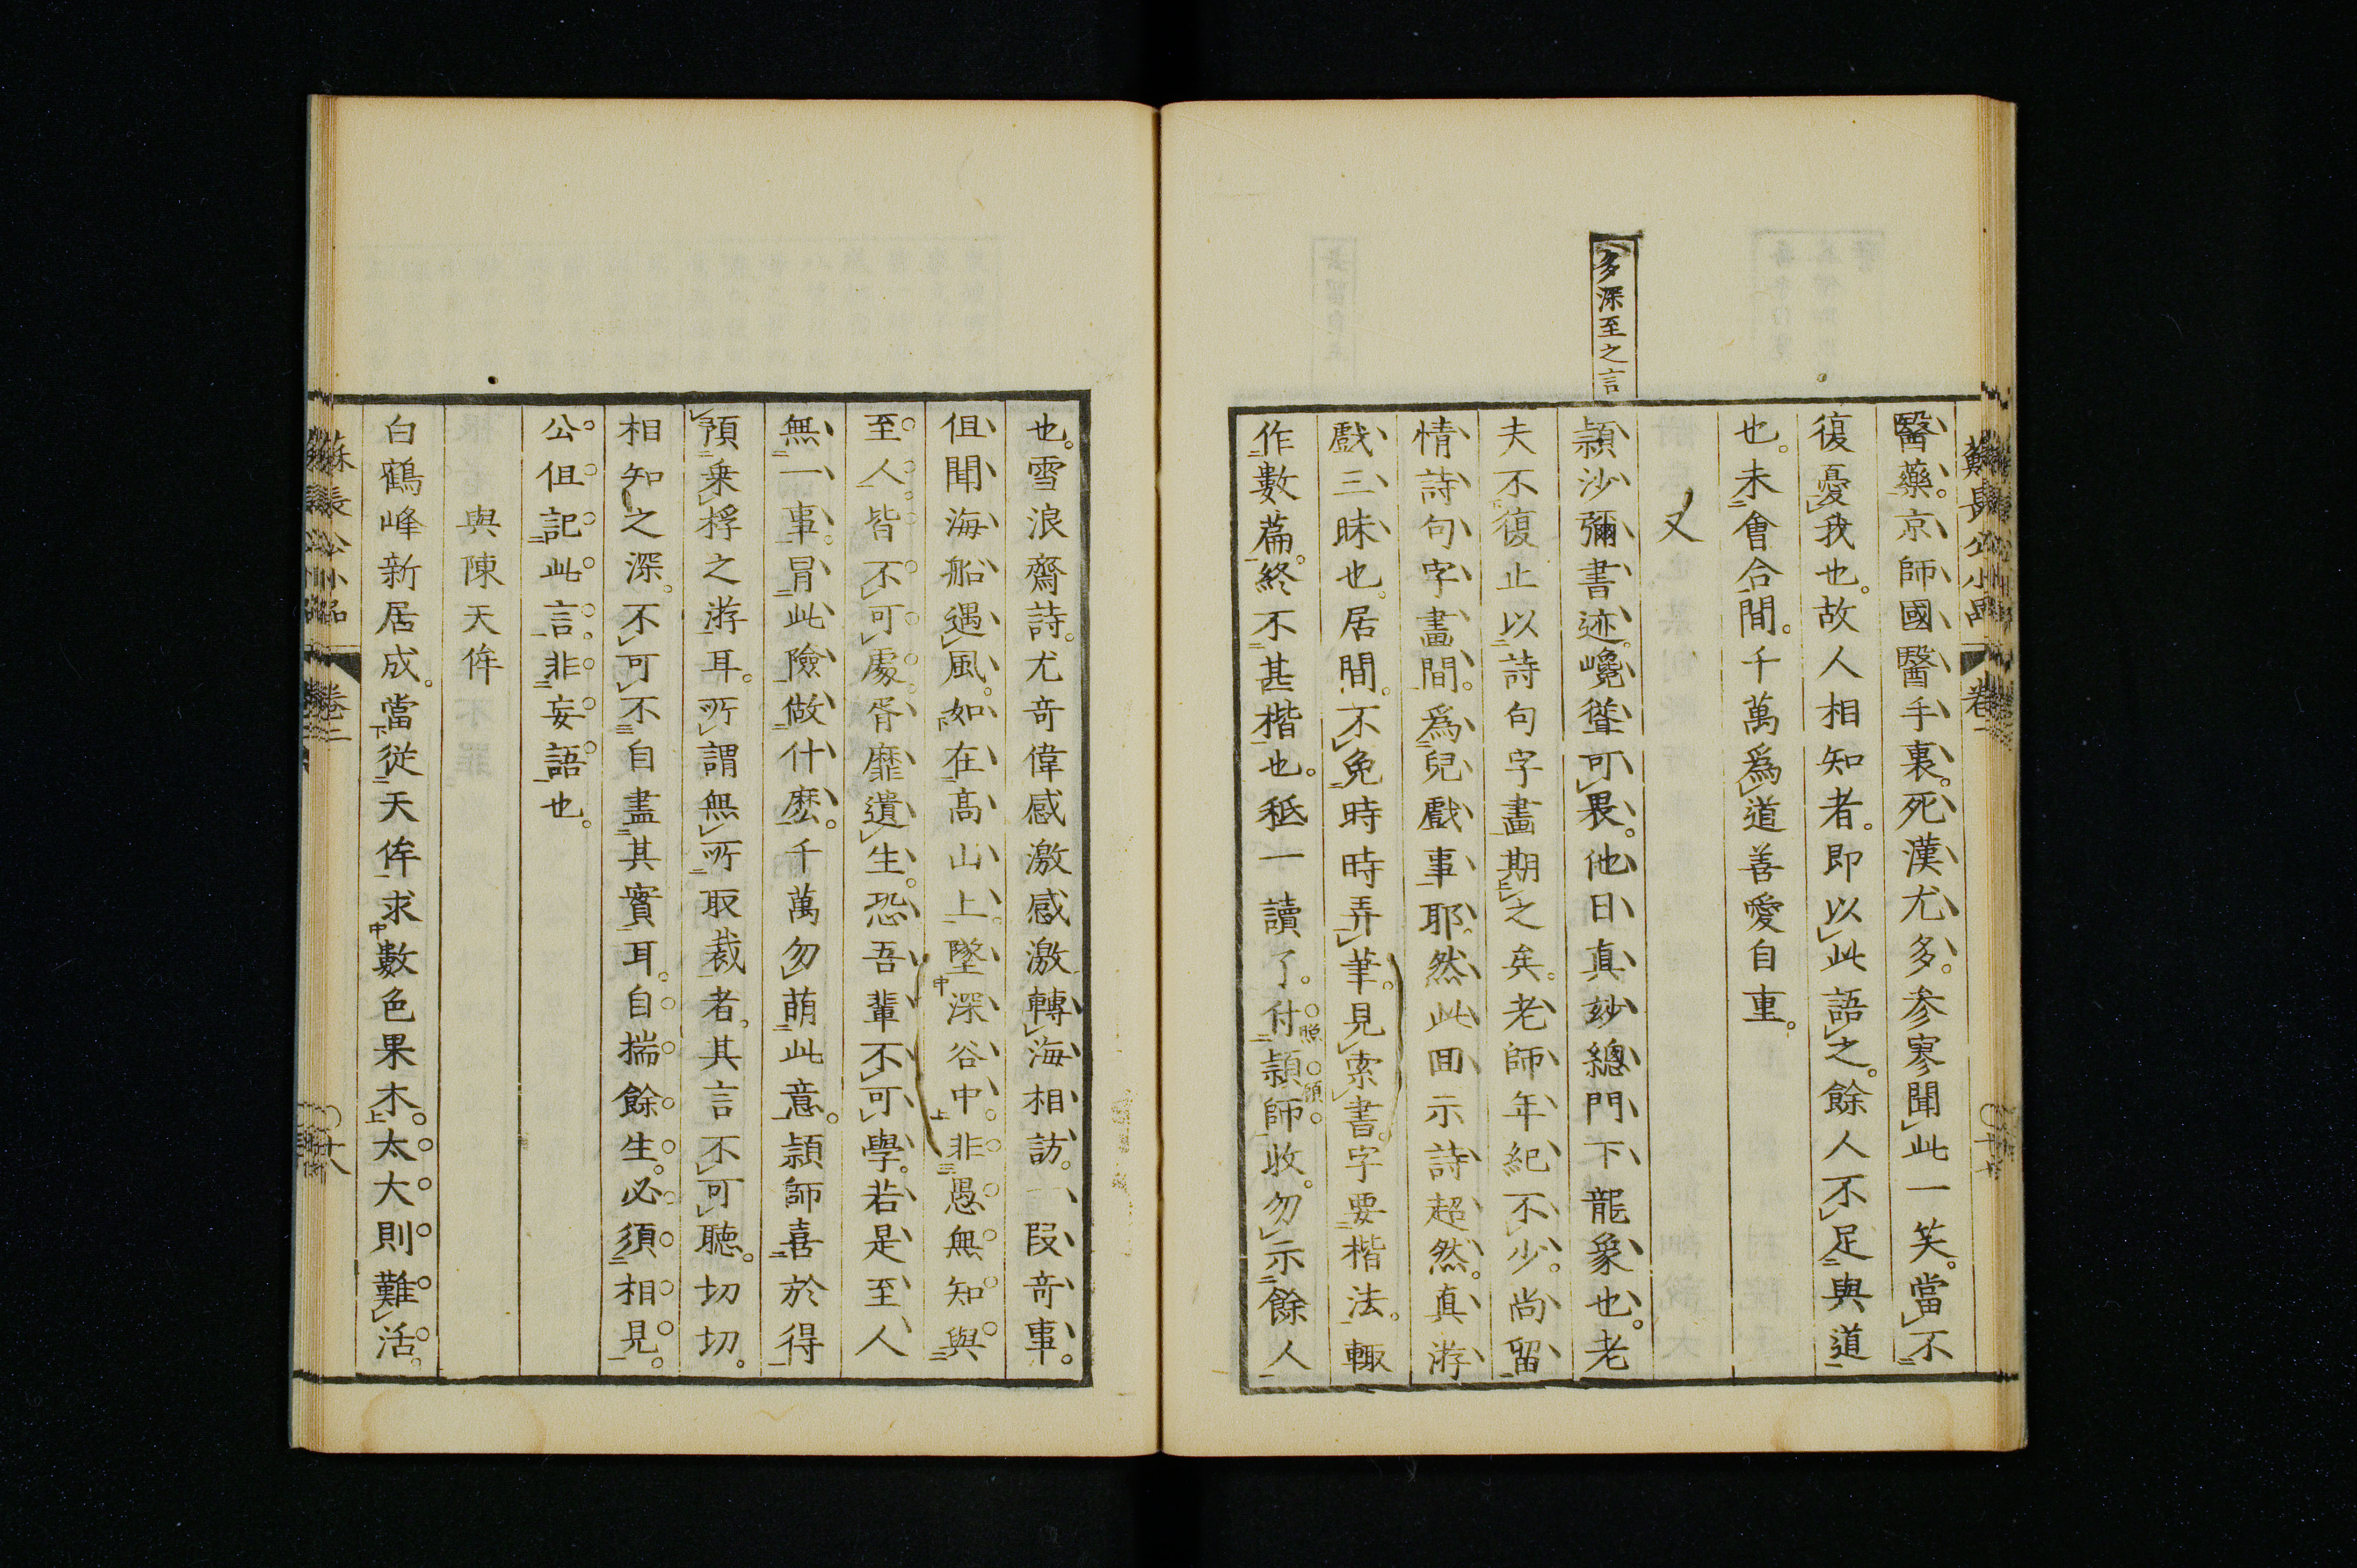 蘇長公小品 卷二
醫藥。京師國醫手裏。死漢尤多。参寥聞此一笑。當不
復憂我也。故人相知者。即以此語之。餘人不足與道
也。未會合間。千萬爲道善愛自重。
又
多深至之言
頴沙彌書迹。巉聳可畏。他日真妙總門下龍象也。老
夫不復止以詩句字畫期之矣。老師年紀不少。尚留
情詩句字畫間。爲兒戲事耶。然此回示詩超然。真游
戲三昧也。居間。不免時時弄筆。見索書。字要楷法。輙
作數篇。終不甚楷也。秪一讀了。付頴師。收。勿示餘人
照 頴
也。雪浪齋詩。尤竒偉感激感激轉海相訪。一叚竒事。
但聞海船遇風。如在髙山上。墜深谷中。非愚無知與
至人。皆不可處胥靡遺生。恐吾輩不可學。若是至人
無一事。冒此險做什麽。千萬勿萌此意。頴師喜於得
預乗桴之游耳。所謂無所取裁者。其言不可聽。切切。
相知之深。不可不自盡其實耳。自揣餘生。必須相見。
公但記此言。非妄語也。
與陳天侔
白鶴峰新居成。當從天侔求數色果木。太大則難活。
蘇長公小品 卷二 十八